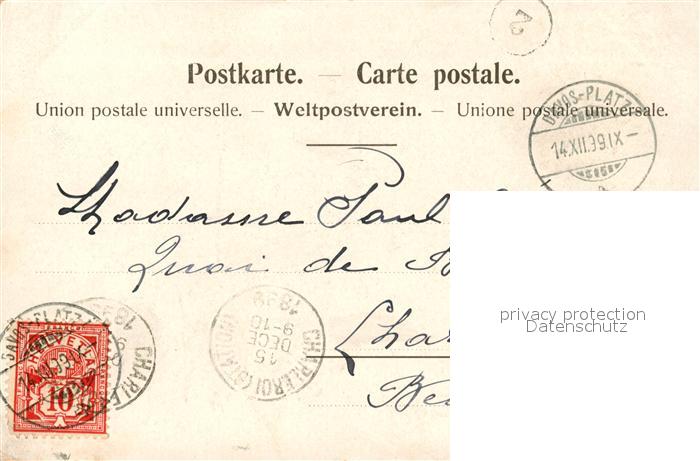 2
Postkarte. — Carte postale.
Union postale universelle. — Weltpostverein. — Unione postale universale.
DAVOS-PLATZ
14.XII.99.IX –
Madame Paul
Quai de
Char
Be
privacy protection
Datenschutz
CHARLEROI (STATION)
15
DECE
9-10
1899
CHARLEROI
189
DAVOS-PLATZ
14.XII.99.IX
HELVETIA
10